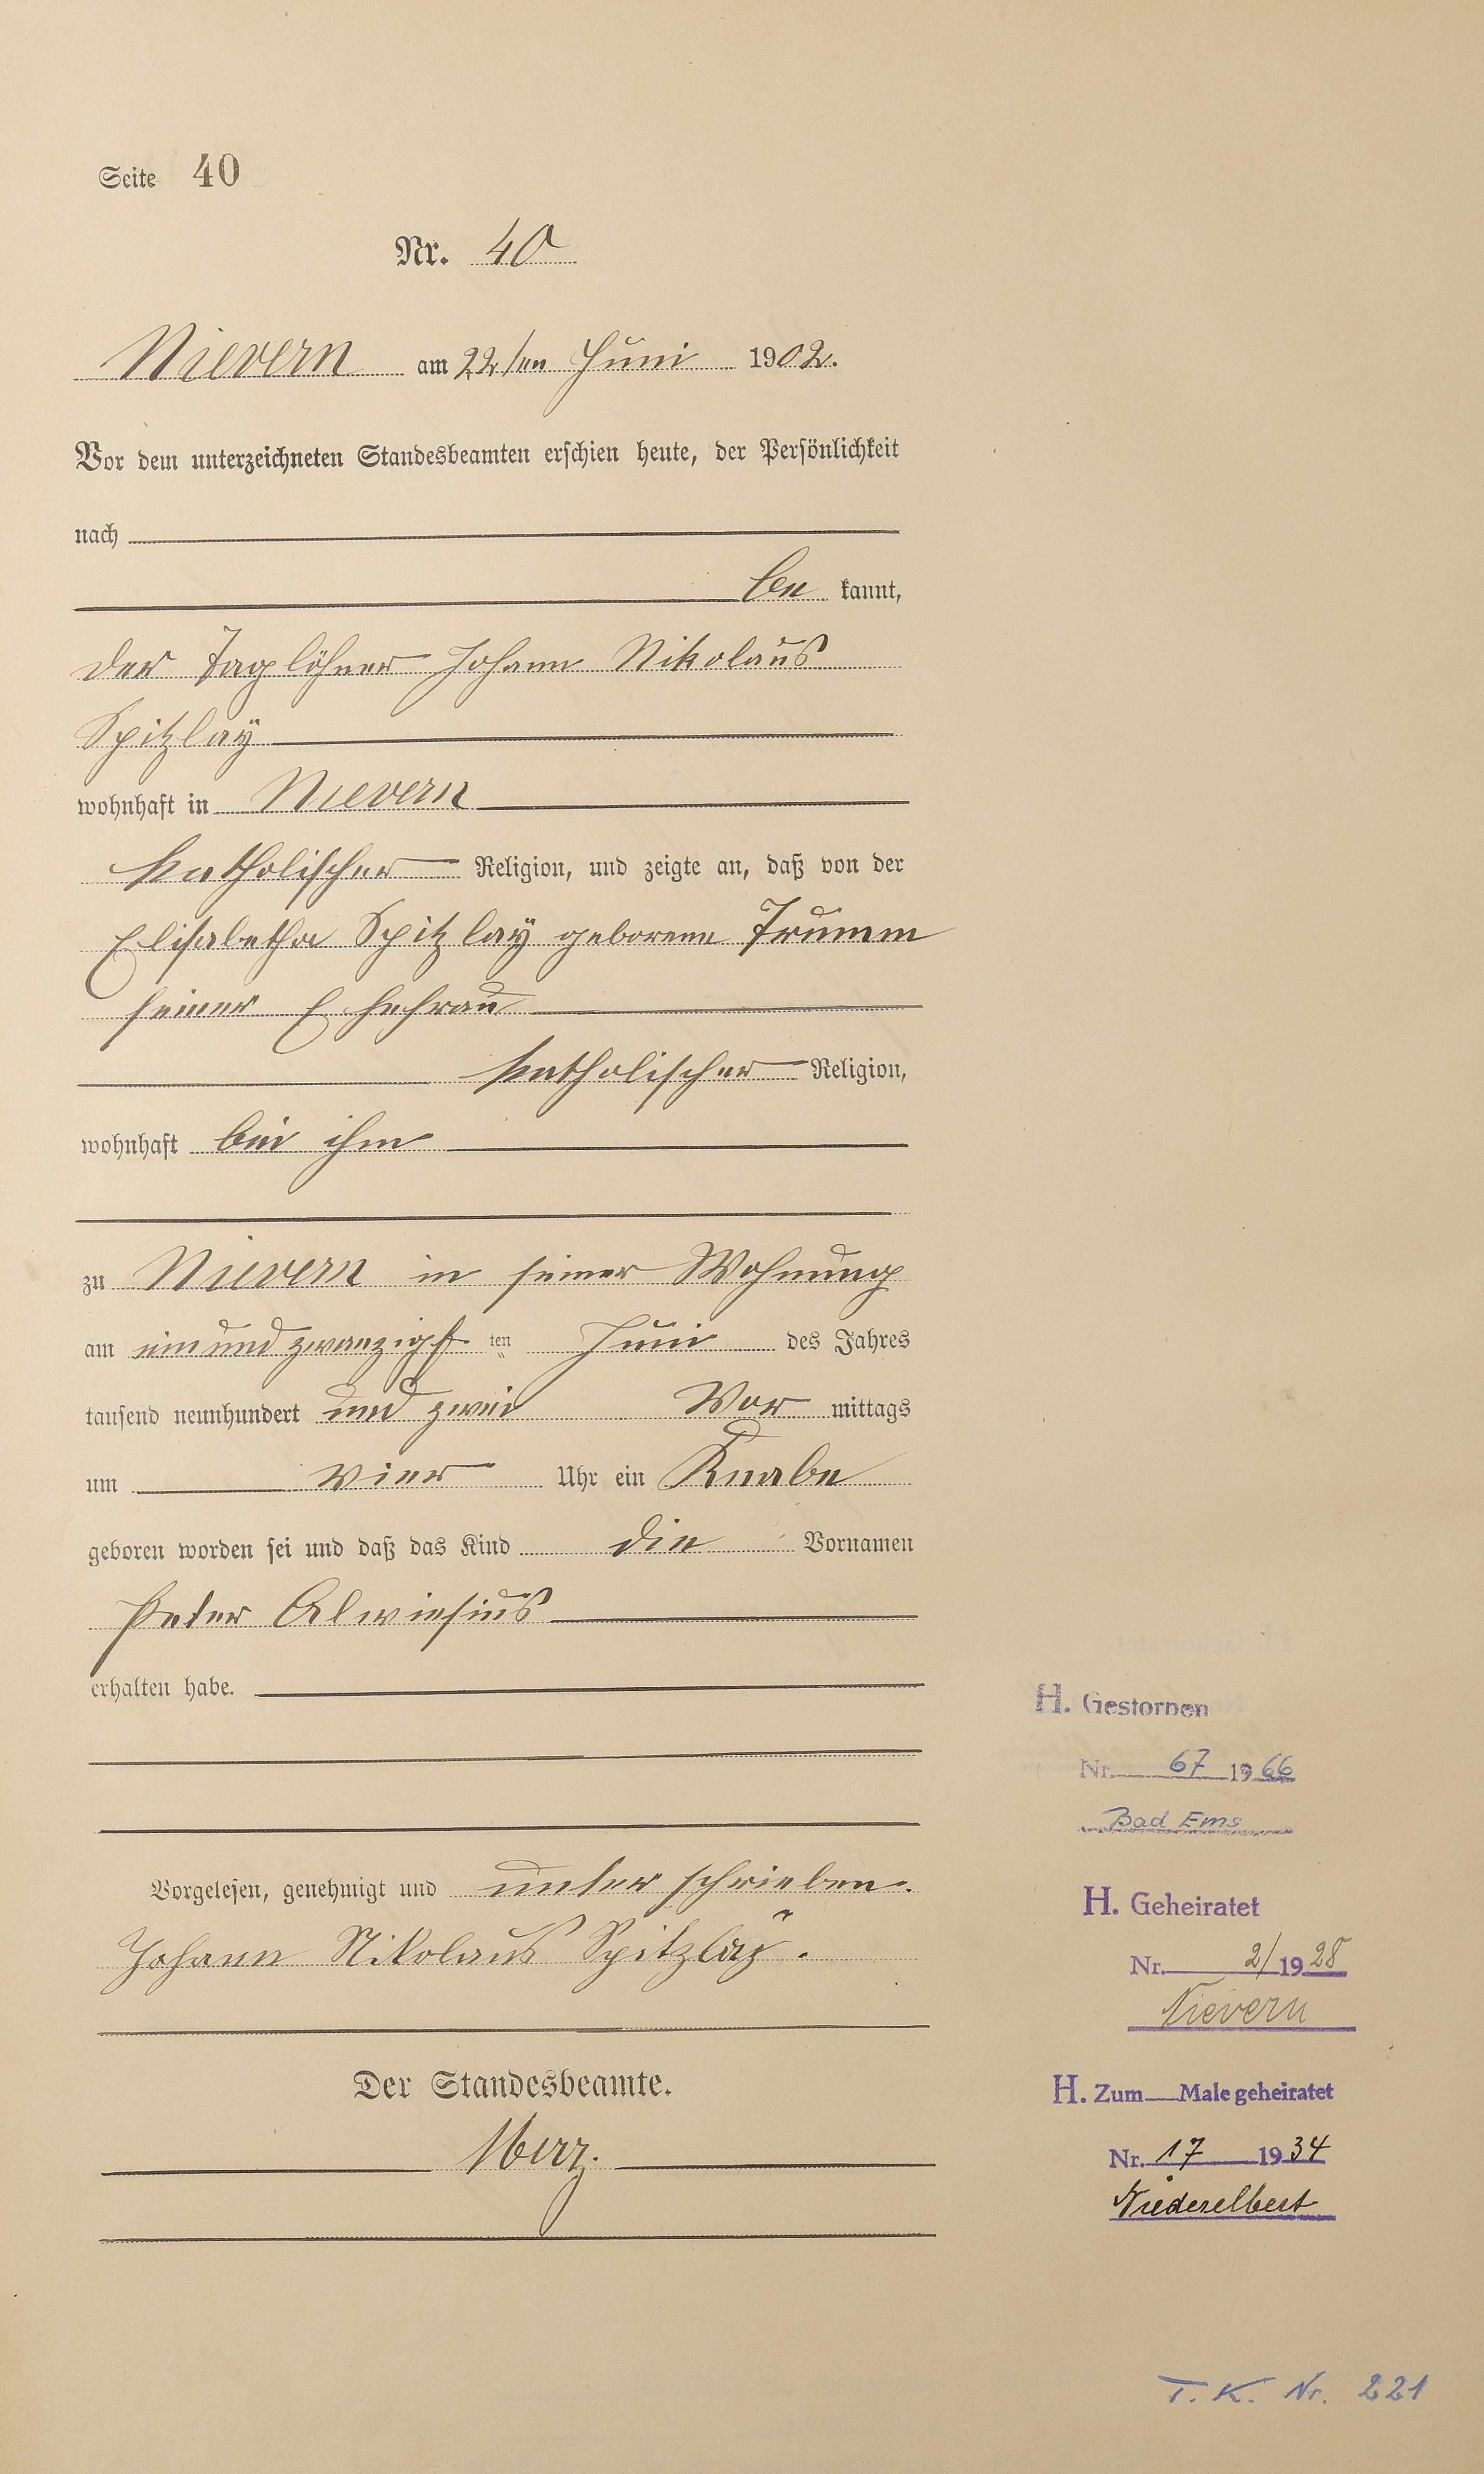 Seite 40
Nr. 40
Nievern am 22ten Juni 1902.
Vor dem unterzeichneten Standesbeamten erschien heute, der Persönlichkeit
nach
be kannt,
der Taglöhner Johann Nikolaus
Spitzlaÿ
wohnhaft in Nievern
katholischer Religion, und zeigte an, daß von der
Elisabetha Spitzlaÿ geborene Trumm
seiner Ehefrau
katholischer Religion,
wohnhaft bei ihm
zu Nievern in seiner Wohnung
am einundzwanzigst ten Juni des Jahres
tausend neunhundert und zwei Vor mittags
um vier Uhr ein Knabe
geboren worden sei und daß das Kind die Vornamen
Peter Alwiesius
erhalten habe.
Vorgelesen, genehmigt und unterschrieben.
Johann Nikolaus Spitzlaÿ.
Der Standesbeamte.
Merz.
H. Gestorben
Nr. 67 1966
Bad Ems
H. Geheiratet
Nr. 2/1928
Nievern
H. Zum Male geheiratet
Nr. 17 1934
Niederelbert
T. K. Nr. 221